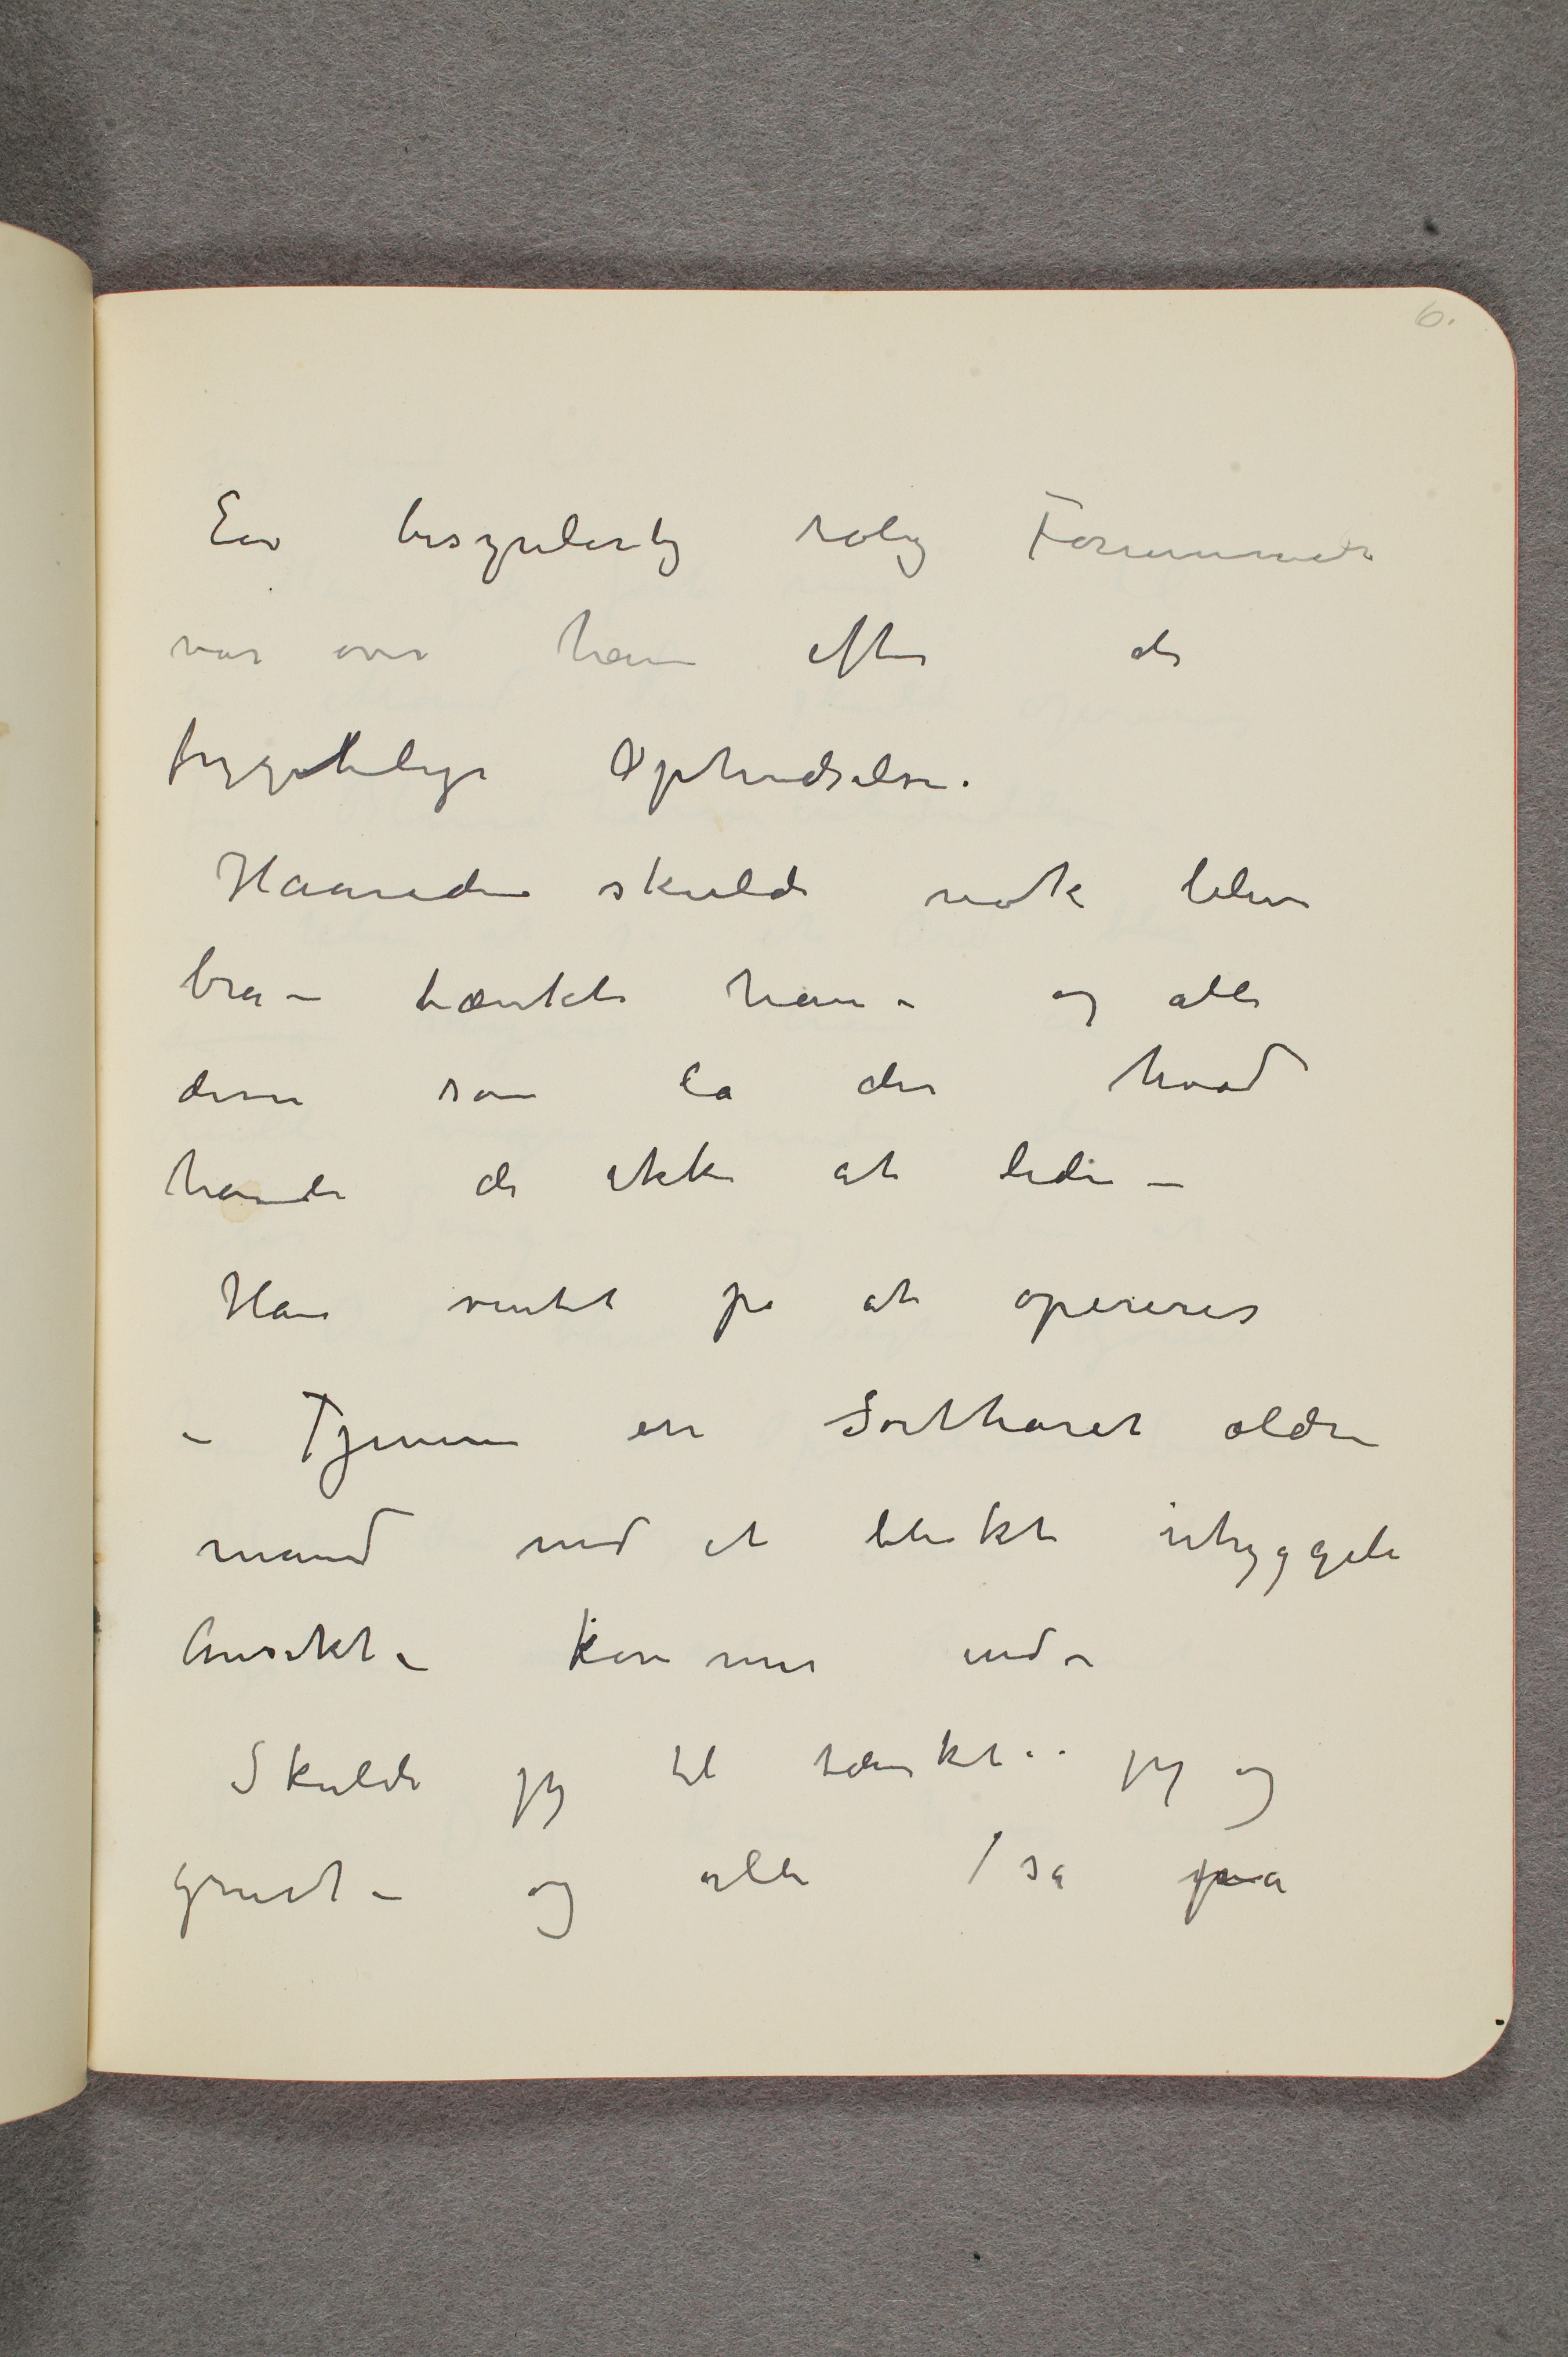 6.
En besynderlig rolig Fornemmelse
var over ham efter de
frygtelige Ophidselser.
Haanden skulde nok blive
bra – tænkte han – og alle
dem som la der hvad
havde de ikke at lide –
Han ventet på at opereres
– Tjeneren en sortharet ældre
mand med et blekt uhyggeli
Ansikt – kommer ind –
Skulde jeg til tænkte jeg og
grøst – og alle så på